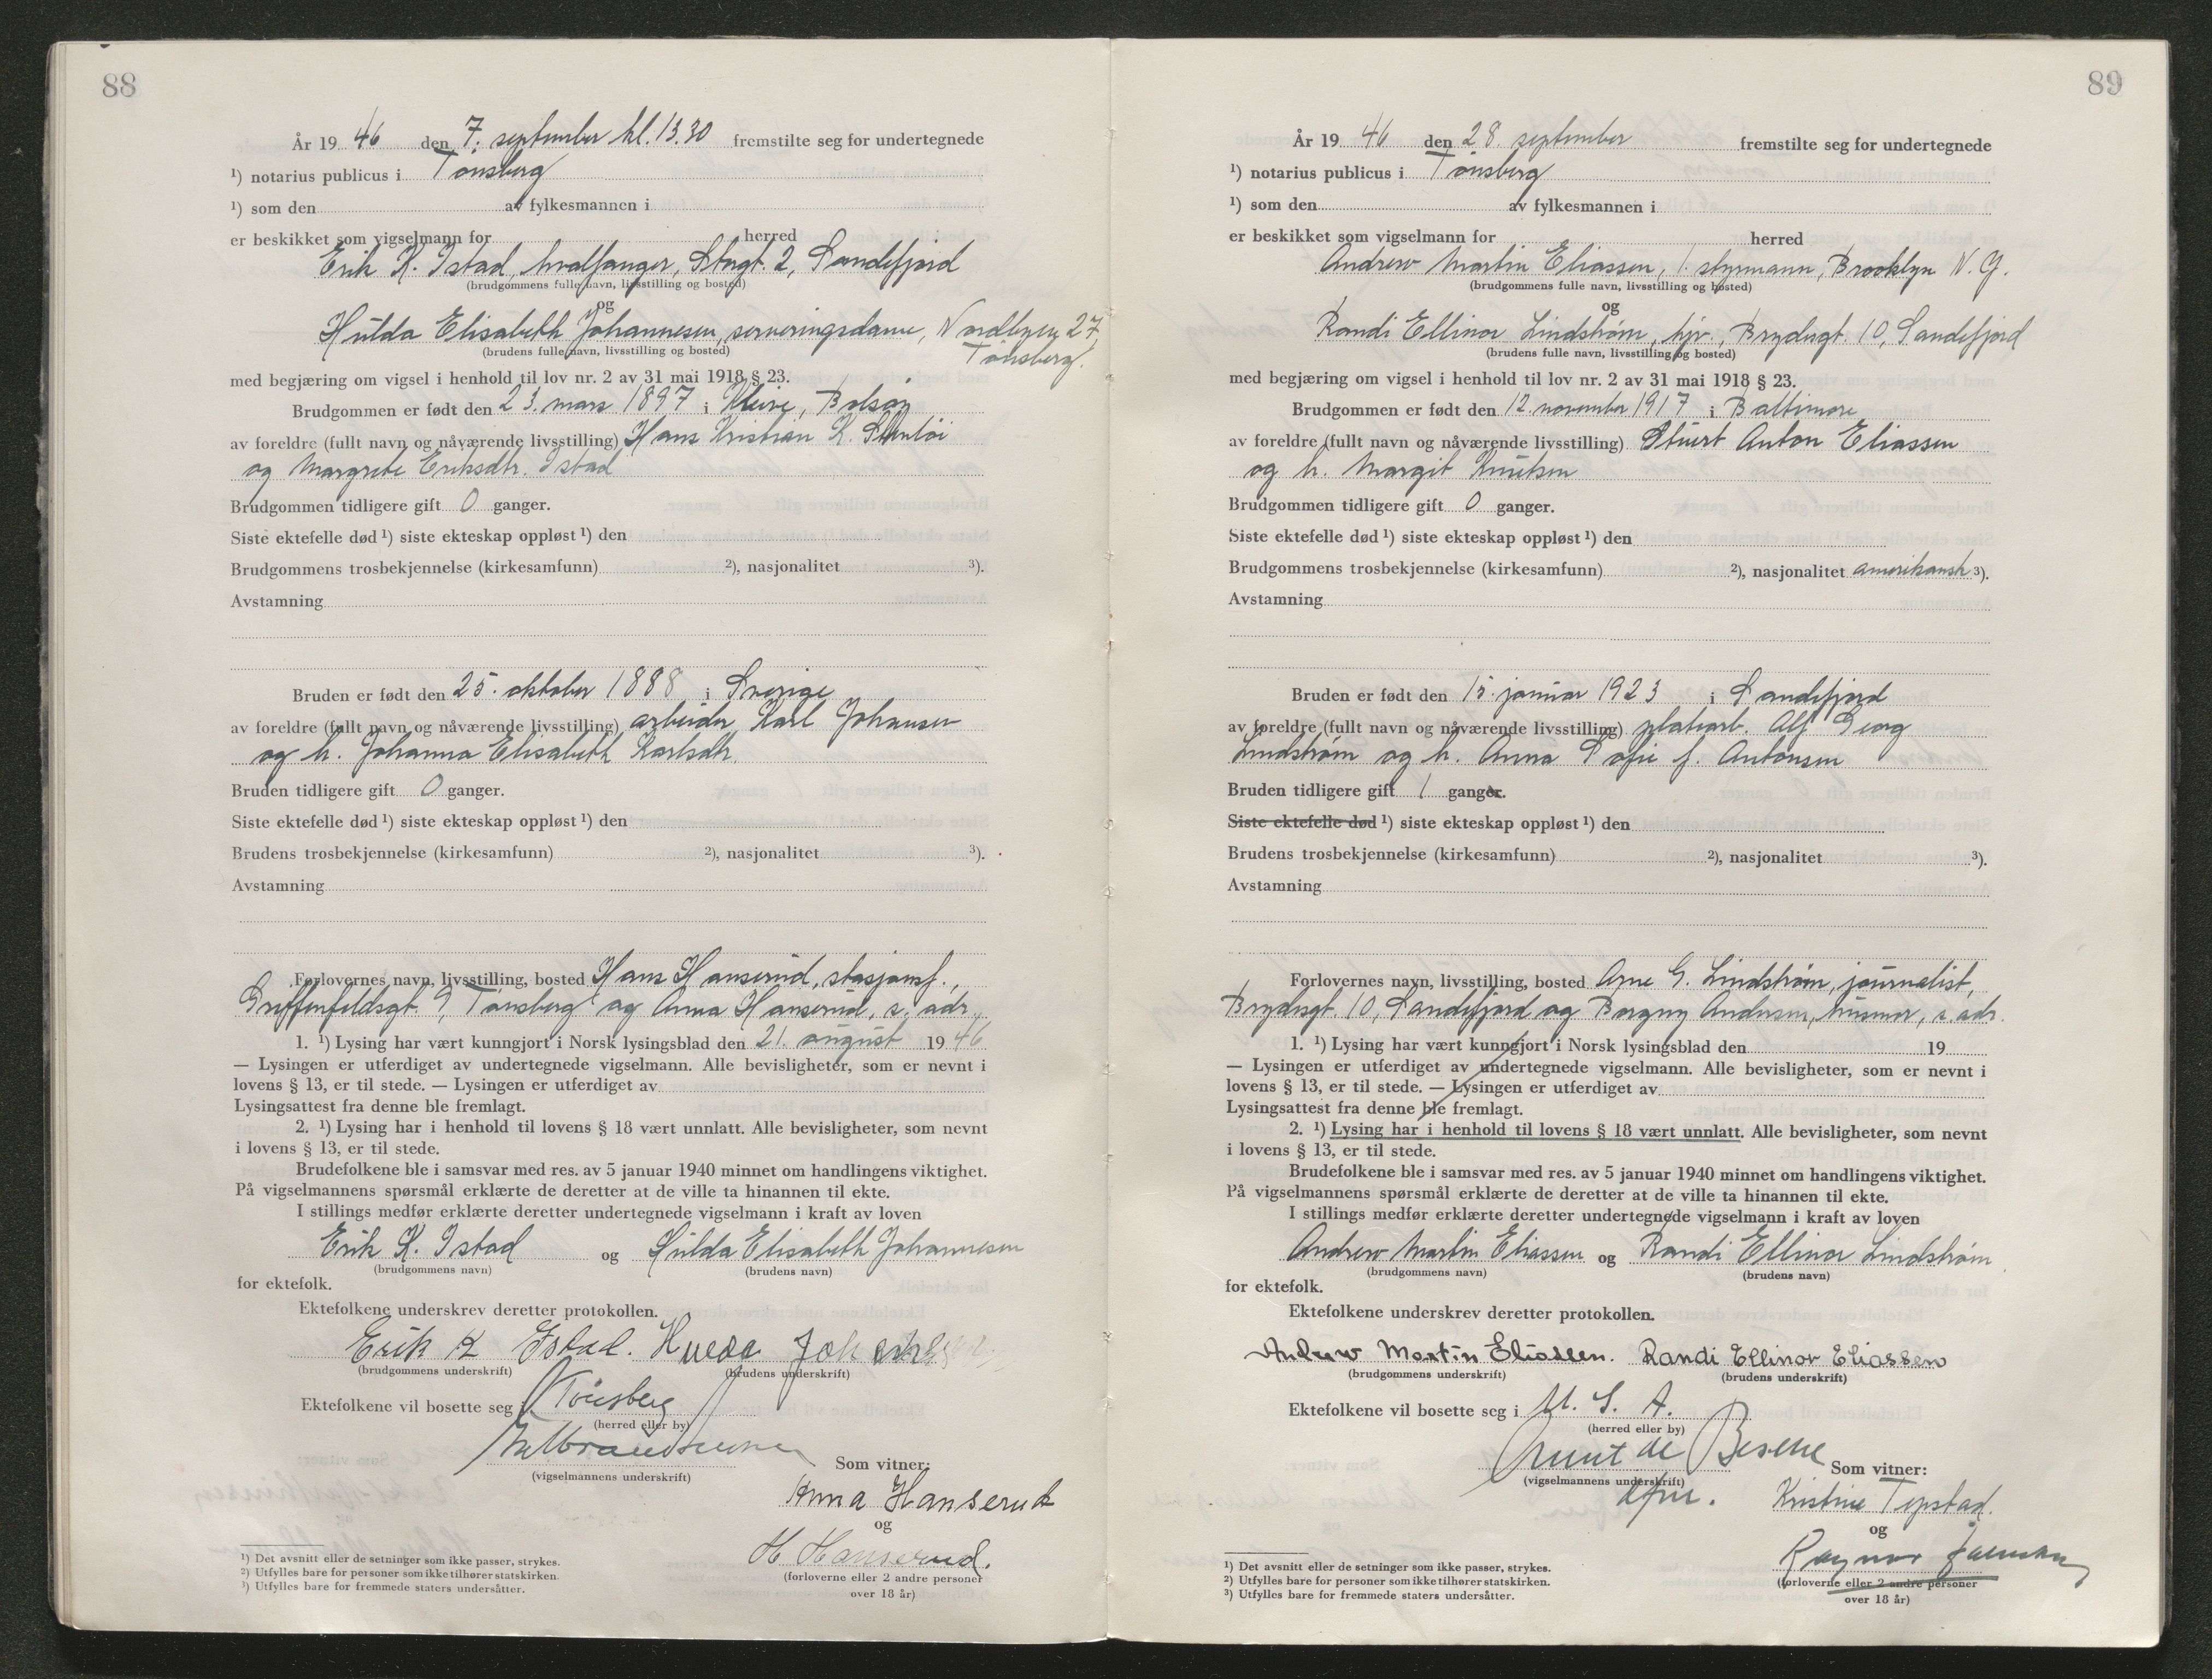 88
År 19 46 den 7. september kl. 13.30 fremstilte seg for undertegnede
¹) notarius publicus i Tønsberg
¹) som den av fylkesmannen i
er beskikket som vigselmann for herred
Erik K. Istad, hvalfanger, Storgt. 2, Sandefjord
(brudgommens fulle navn, livsstilling og bosted)
og
Hulda Elisabeth Johannesen, serveringsdame, Nordbyen 27,
Tønsberg.
(brudens fulle navn, livsstilling og bosted)
med begjæring om vigsel i henhold til lov nr. 2 av 31 mai 1918 § 23.
Brudgommen er født den 23. mars 1897 i Kleive, Bolsøy
av foreldre (fullt navn og nåværende livsstilling) Hans Kristian K.
og Margrete Eriksdtr. Istad
Brudgommen tidligere gift 0 ganger.
Siste ektefelle død ¹) siste ekteskap oppløst ¹) den
Brudgommens trosbekjennelse (kirkesamfunn) ²), nasjonalitet ³).
Avstamning
Bruden er født den 25. oktober 1888 i Sverige
av foreldre (fullt navn og nåværende livsstilling) arbeider Karl Johansen
og h. Johanna Elisabeth Karlsdtr.
Bruden tidligere gift 0 ganger.
Siste ektefelle død ¹) siste ekteskap oppløst ¹) den
Brudens trosbekjennelse (kirkesamfunn) ²), nasjonalitet ³).
Avstamning
Forlovernes navn, livsstilling, bosted Hans Hanserud, stasjonsf.,
Griffenfeldsgt. 9, Tønsberg og Anna Hanserud, s. adr.
1. ¹) Lysing har vært kunngjort i Norsk lysingsblad den 21. august 1946
— Lysingen er utferdiget av undertegnede vigselmann. Alle bevisligheter, som er nevnt i
lovens § 13, er til stede. — Lysingen er utferdiget av
Lysingsattest fra denne ble fremlagt.
2. ¹) Lysing har i henhold til lovens § 18 vært unnlatt. Alle bevisligheter, som nevnt
i lovens § 13, er til stede.
Brudefolkene ble i samsvar med res. av 5 januar 1940 minnet om handlingens viktighet.
På vigselmannens spørsmål erklærte de deretter at de ville ta hinannen til ekte.
I stillings medfør erklærte deretter undertegnede vigselmann i kraft av loven
Erik K. Istad og Hulda Elisabeth Johannesen
(brudgommens navn) (brudens navn)
for ektefolk.
Ektefolkene underskrev deretter protokollen.
Erik K Istad. Hulda
(brudgommens underskrift) (brudens underskrift)
Ektefolkene vil bosette seg i Tønsberg
(herred eller by)
(vigselmannens underskrift)
Som vitner:
Anna Hanserud
og
H Hanserud.
(forloverne eller 2 andre personer
over 18 år)
¹) Det avsnitt eller de setninger som ikke passer, strykes.
²) Utfylles bare for personer som ikke tilhører statskirken.
³) Utfylles bare for fremmede staters undersåtter.
89
År 19 46 den 28. september fremstilte seg for undertegnede
¹) notarius publicus i Tønsberg
¹) som den av fylkesmannen i
er beskikket som vigselmann for herred
Andrew Martin Eliassen, 1. styrmann, Brooklyn N.Y.
(brudgommens fulle navn, livsstilling og bosted)
og
Randi Ellinor Lindstrøm, hjv., Brydesgt. 10, Sandefjord
(brudens fulle navn, livsstilling og bosted)
med begjæring om vigsel i henhold til lov nr. 2 av 31 mai 1918 § 23.
Brudgommen er født den 12. november 1917 i Baltimore
av foreldre (fullt navn og nåværende livsstilling) Stuert Anton Eliassen
og h. Margit Knutsen
Brudgommen tidligere gift 0 ganger.
Siste ektefelle død ¹) siste ekteskap oppløst ¹) den
Brudgommens trosbekjennelse (kirkesamfunn) ²), nasjonalitet amerikansk ³).
Avstamning
Bruden er født den 15. januar 1923 i Sandefjord
av foreldre (fullt navn og nåværende livsstilling) platearb. Alf Georg
Lindstrøm og h. Anna Sofie f. Antonsen
Bruden tidligere gift 1 ganger.
Siste ektefelle død ¹) siste ekteskap oppløst ¹) den
Brudens trosbekjennelse (kirkesamfunn) ²), nasjonalitet ³).
Avstamning
Forlovernes navn, livsstilling, bosted Arne G. Lindstrøm, journalist,
Brydesgt. 10, Sandefjord og Borgny Andersen, husmor, s. adr.
1. ¹) Lysing har vært kunngjort i Norsk lysingsblad den 19
— Lysingen er utferdiget av undertegnede vigselmann. Alle bevisligheter, som er nevnt i
lovens § 13, er til stede. — Lysingen er utferdiget av
Lysingsattest fra denne ble fremlagt.
2. ¹) Lysing har i henhold til lovens § 18 vært unnlatt. Alle bevisligheter, som nevnt
i lovens § 13, er til stede.
Brudefolkene ble i samsvar med res. av 5 januar 1940 minnet om handlingens viktighet.
På vigselmannens spørsmål erklærte de deretter at de ville ta hinannen til ekte.
I stillings medfør erklærte deretter undertegnede vigselmann i kraft av loven
Andrew Martin Eliassen og Randi Ellinor Lindstrøm
(brudgommens navn) (brudens navn)
for ektefolk.
Ektefolkene underskrev deretter protokollen.
Andrew Martin Eliassen. Randi Ellinor Eliassen
(brudgommens underskrift) (brudens underskrift)
Ektefolkene vil bosette seg i U. S. A.
(herred eller by)
Knut de Besche
(vigselmannens underskrift)
Som vitner:
Kristine Tepstad.
og
Ragnar
(forloverne eller 2 andre personer
over 18 år)
¹) Det avsnitt eller de setninger som ikke passer, strykes.
²) Utfylles bare for personer som ikke tilhører statskirken.
³) Utfylles bare for fremmede staters undersåtter.